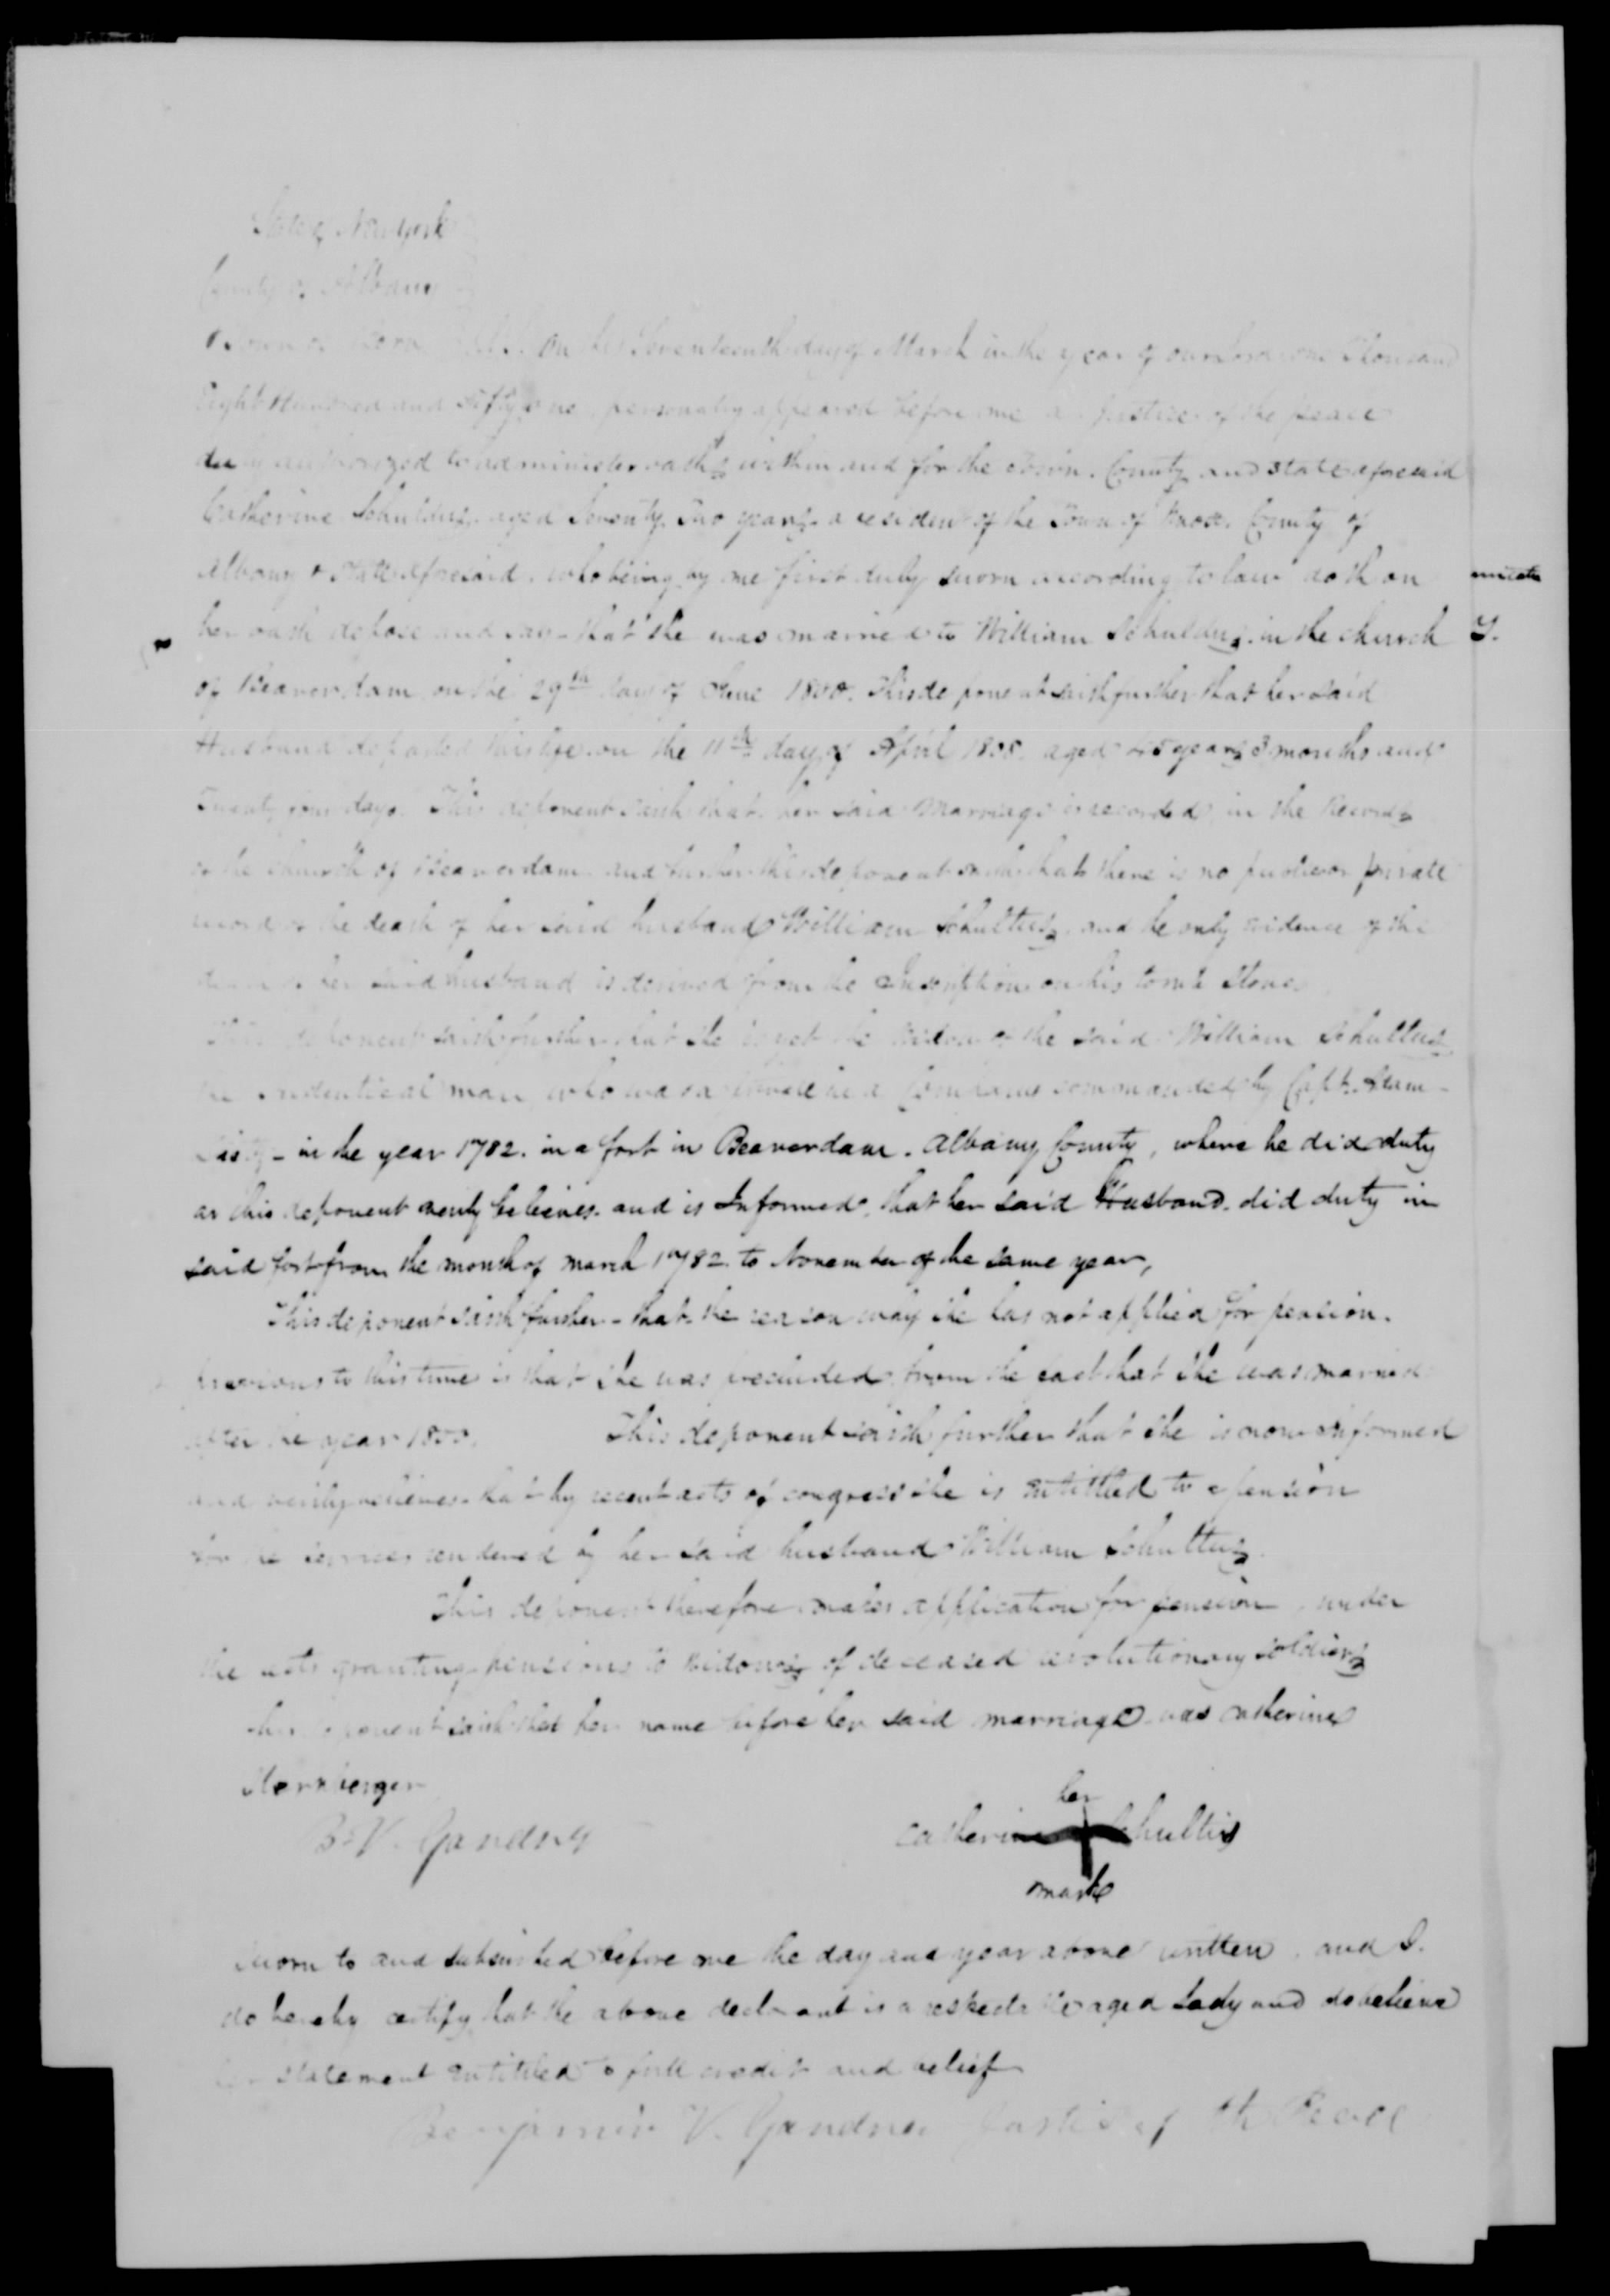 State of New York
County of Albany
Town of On this Seventeenth day of March in the year of our Lord one Thousand
Eight Hundred and Fifty one personally appeared before me a Justice of the peace
duly authorized to administer oaths within and for the Town, County and State aforesaid
Catherine aged Seventy Two years a resident of the Town of Knox County of
Albany & State aforesaid, who being by me first duly sworn according to law doth on
her oath depose and say - that she was married to William in the church
of Beaverdam on the 29th day of June 1800. This deponent saith further that her said
Husband departed this life on the 11th day of April aged 45 years 3 months and
Twenty days. This deponent saith that her said Marriage is recorded in the Records
of the church of Beaverdam and further this deponent saith that there is no public or private
record of the death of her said husband William Schultus, and the only evidence of the
death of her said husband is derived from the Inscription on his tomb Stone
This deponent saith further that she is yet the Widow of the said William Schultus
the identical man who was a private in a Company commanded by Capt.
- in the year 1782. in a fort in Beaverdam. Albany County, where he did duty
as this deponent verily believes. and is Informed, that her said Husband. did duty in
said fort from the month of march 1782. to November of the same year,
This deponent saith further - that the reason why she has not applied for pension.
previous to this time is that she was precluded from the fact that she was married
after the year 1800. This deponent saith further that she is now informed
and verily believes that by recent acts of congress she is entitled to a pension
for the services rendered by her said husband William Schultus
This deponent therefore makes application for pension, under
the acts granting pensions to Widows of deceased revolutionary soldiers
this deponent saith that her name before her said marriage was Catherine

B. V. Gardner
her
Catherine Schultis
mark
Sworn to and subscribed before me the day and year above written, and I.
do hereby certify that the above declarant is a respectable aged Lady and do believe
her statement entitled to full credit and belief
Benjamin V. Gardner Justice of the Peace